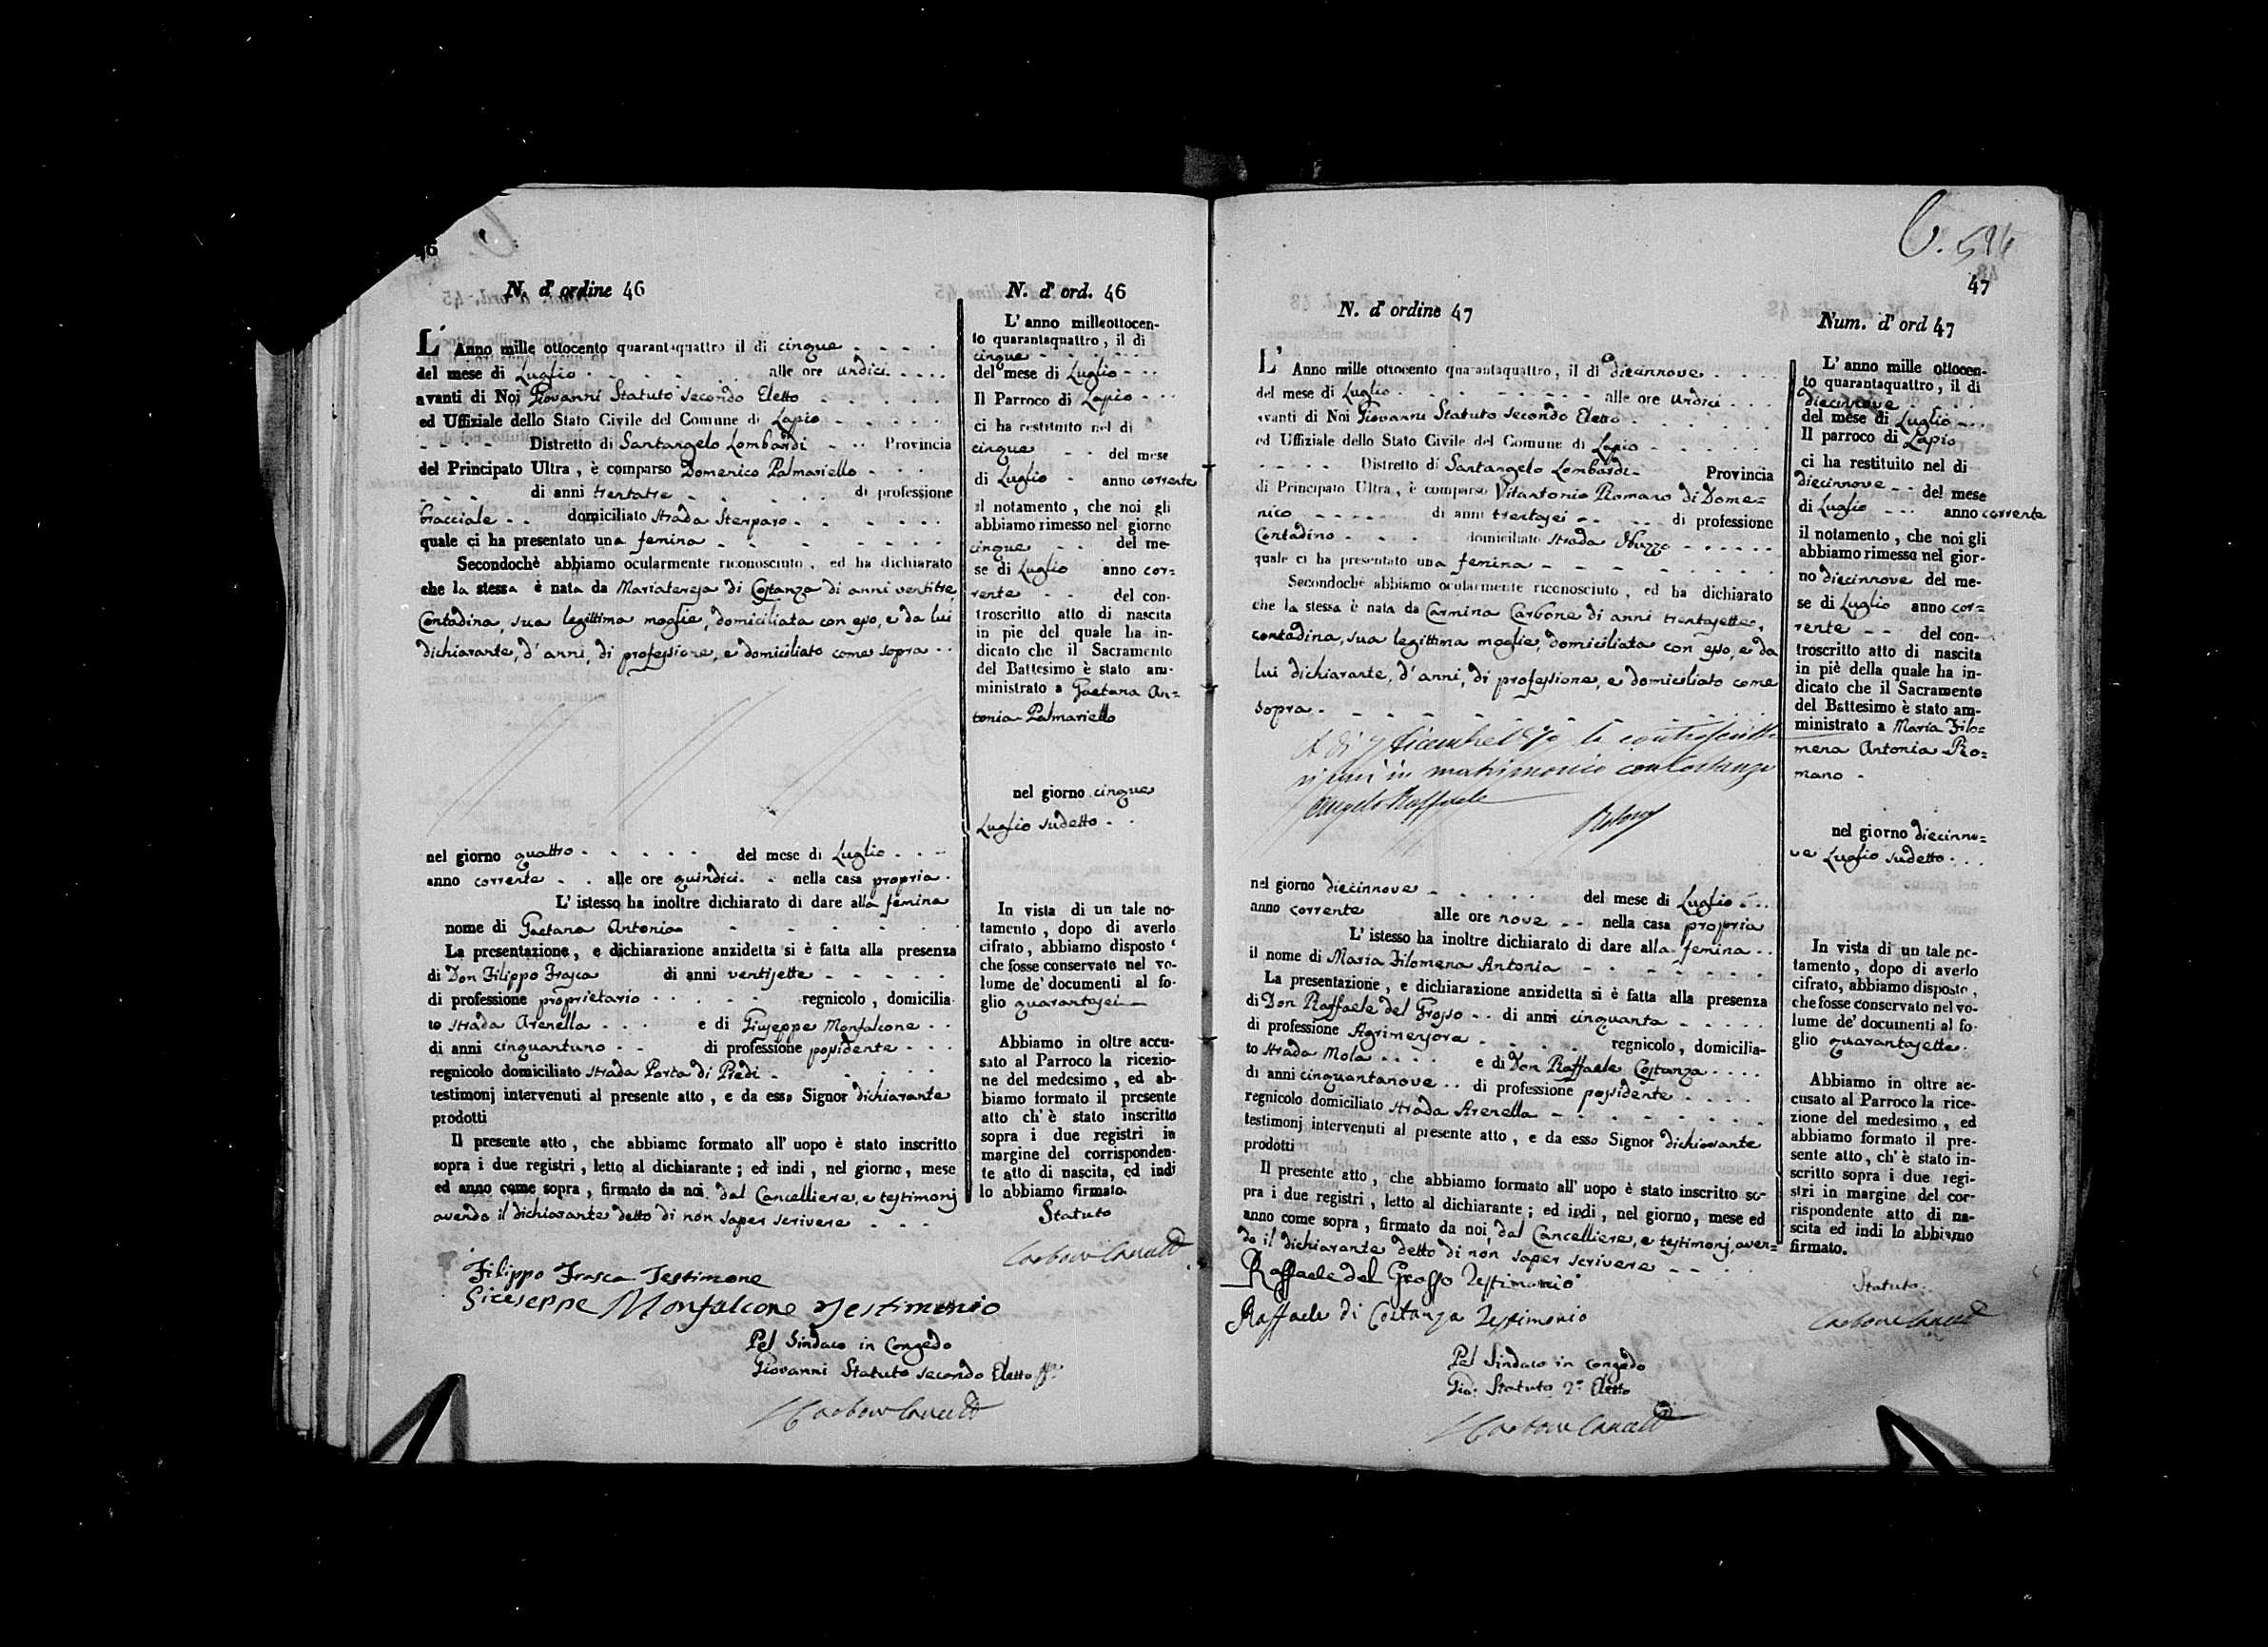 46
N. d' ordine 46
L' Anno mille ottocento quarantaquattro il di cinque
del mese di Luglio alle ore undici
avanti di Noi Giovanni Statuto secondo Eletto
ed Uffiziale dello Stato Civile del Comune di Lapio
Distretto di Santangelo Lombardi Provincia
del Principato Ultra, è comparso Domenico Palmariello
di anni trentatre di professione
bracciale domiciliato strada Sterparo
quale ci ha presentato una femina
Secondochè abbiamo ocularmente riconosciuto, ed ha dichiarato
che la stessa è nata da Mariateresa di Costanza di anni ventitre,
Contadina, sua legittima moglie, domiciliata con esso, e da lui
dichiarante, d' anni, di professione, e domiciliato come sopra
nel giorno quattro del mese di Luglio
anno corrente alle ore quindici nella casa propria
L' istesso ha inoltre dichiarato di dare alla femina
nome di Gaetana Antonia
La presentazione, e dichiarazione anzidetta si è fatta alla presenza
di Don Filippo Frasca di anni ventisette
di professione proprietario regnicolo, domicilia
to strada Arenella e di Giuseppe Monfalcone
di anni cinquantuno di professione possidente
regnicolo domiciliato strada Porta di Piedi
testimonj intervenuti al presente atto, e da esso Signor dichiarante
prodotti
Il presente atto, che abbiamo formato all' uopo è stato inscritto
sopra i due registri, letto al dichiarante; ed indi, nel giorno, mese
ed anno come sopra, firmato da noi dal Cancelliere, e testimonj
avendo il dichiarante detto di non saper scrivere
Filippo Frasca Testimone
Giuseppe Monfalcone Testimonio
Pel Sindaco in Congedo
Giovanni Statuto secondo Eletto
N. d' ord. 46
L' anno milleottocen-
to quarantaquattro, il di
cinque
del mese di Luglio
Il Parroco di Lapio
ci ha restituito nel di
cinque del mese
di Luglio anno corrente
il notamento, che noi gli
abbiamo rimesso nel giorno
cinque del me-
se di Luglio anno cor=
rente del con-
troscritto atto di nascita
in pie del quale ha in-
dicato che il Sacramento
del Battesimo è stato am-
ministrato a Gaetana An=
tonia Palmariello
nel giorno cinque
Luglio sudetto
In vista di un tale no-
tamento, dopo di averlo
cifrato, abbiamo disposto
che fosse conservato nel vo-
lume de' documenti al fo-
glio quarantasei
Abbiamo in oltre accu-
sato al Parroco la ricezio-
ne del medesimo, ed ab-
biamo formato il presente
atto ch' è stato inscritto
sopra i due registri in
margine del corrisponden-
te atto di nascita, ed indi
lo abbiamo firmato.
Statuto
47
N. d' ordine 47
L' Anno mille ottocento quarantaquattro, il di diecinnove
del mese di Luglio alle ore undici
avanti di Noi Giovanni Statuto secondo Eletto
ed Uffiziale dello Stato Civile del Comune di Lapio
Distretto di Santangelo Lombardi Provincia
di Principato Ultra, è comparso Vitantonio Romano di Dome=
nico di anni trentasei di professione
Contadino domiciliato strada
quale ci ha presentato una femina
Secondochè abbiamo ocularmente riconosciuto, ed ha dichiarato
che la stessa è nata da Carmina Carbone di anni trentasette,
contadina, sua legittima moglie, domiciliata con esso, e da
lui dichiarante, d' anni, di professione, e domiciliato come
sopra
A di 7 Dicembre la controscritta
si unì in matrimonio con Costanza
Angelo Raffaele
nel giorno diecinnove del mese di Luglio
anno corrente alle ore nove nella casa propria
L' istesso ha inoltre dichiarato di dare alla femina
il nome di Maria Filomena Antonia
La presentazione, e dichiarazione anzidetta si è fatta alla presenza
di Don Raffaele del Grosso di anni cinquanta
di professione Agrimensore regnicolo, domicilia-
to strada Mola e di Don Raffaele Costanza
di anni cinquantanove di professione possidente
regnicolo domiciliato strada Arenella
testimonj intervenuti al presente atto, e da esso Signor dichiarante
prodotti
Il presente atto, che abbiamo formato all' uopo è stato inscritto so-
pra i due registri, letto al dichiarante; ed indi, nel giorno, mese ed
anno come sopra, firmato da noi, dal Cancelliere, e testimonj, aven=
do il dichiarante detto di non saper scrivere
Raffaele del Grosso Testimonio
Raffaele di Costanza Testimonio
Pel Sindaco in congedo
Gio: Statuto 2º Eletto
Num. d' ord 47
L' anno mille ottocen-
to quarantaquattro, il di
diecinnove
del mese di Luglio
Il parroco di Lapio
ci ha restituito nel di
diecinnove del mese
di Luglio anno corrente
il notamento, che noi gli
abbiamo rimesso nel gior-
no diecinnove del me-
se di Luglio anno cor=
rente del con-
troscritto atto di nascita
in piè della quale ha in-
dicato che il Sacramento
del Battesimo è stato am-
ministrato a Maria Filo=
mena Antonia Ro=
mano
nel giorno diecinno=
ve Luglio sudetto
In vista di un tale no-
tamento, dopo di averlo
cifrato, abbiamo disposto,
che fosse conservato nel vo-
lume de' documenti al fo-
glio quarantasette
Abbiamo in oltre ac-
cusato al Parroco la rice-
zione del medesimo, ed
abbiamo formato il pre-
sente atto, ch' è stato in-
scritto sopra i due regi-
stri in margine del cor-
rispondente atto di na-
scita ed indi lo abbiamo
firmato.
Statuto